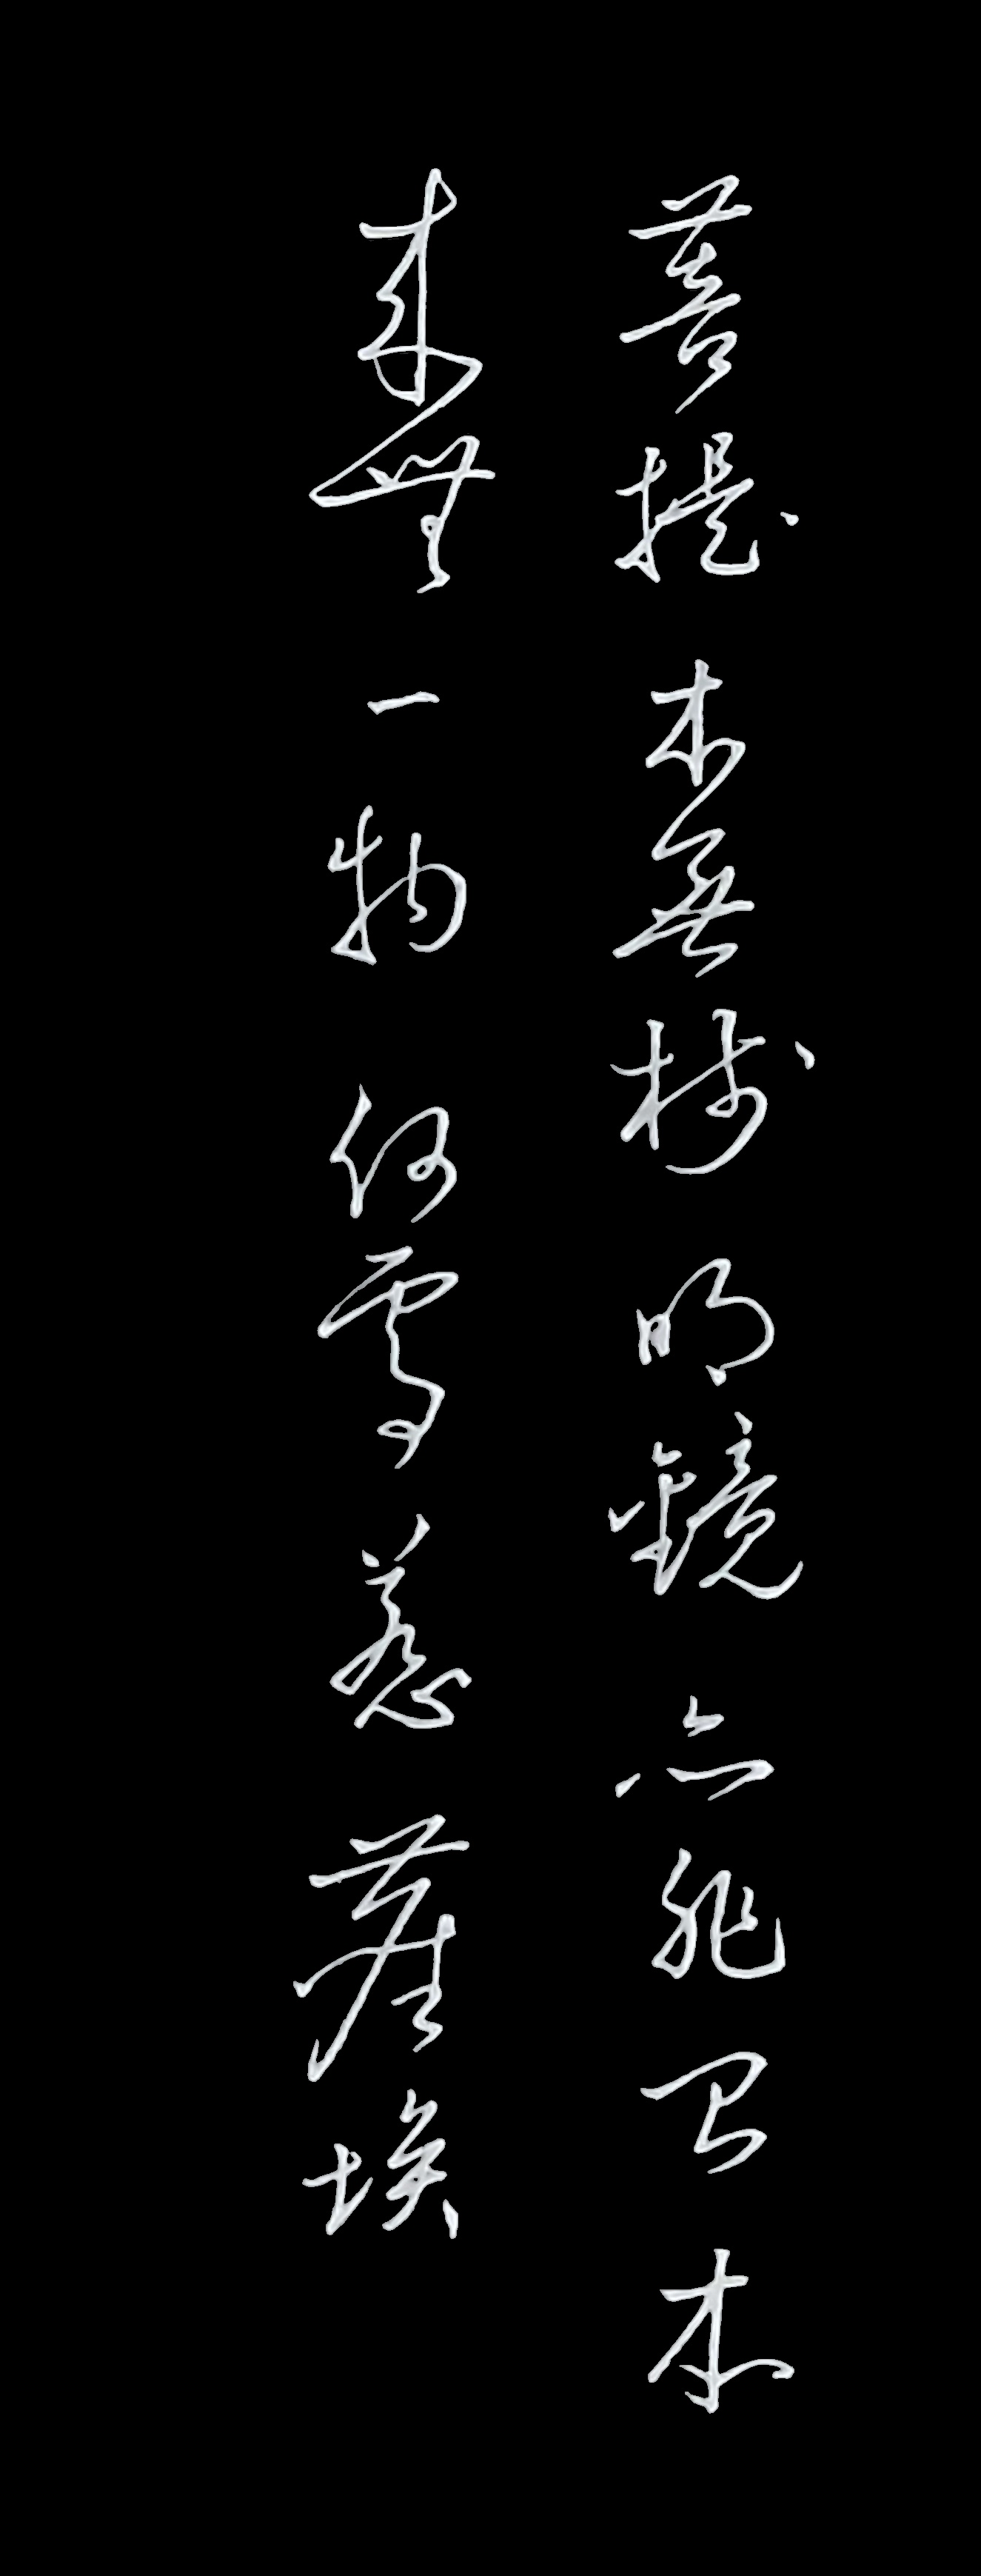 菩提本無樹明鏡亦非臺本
來無一物何處惹塵埃